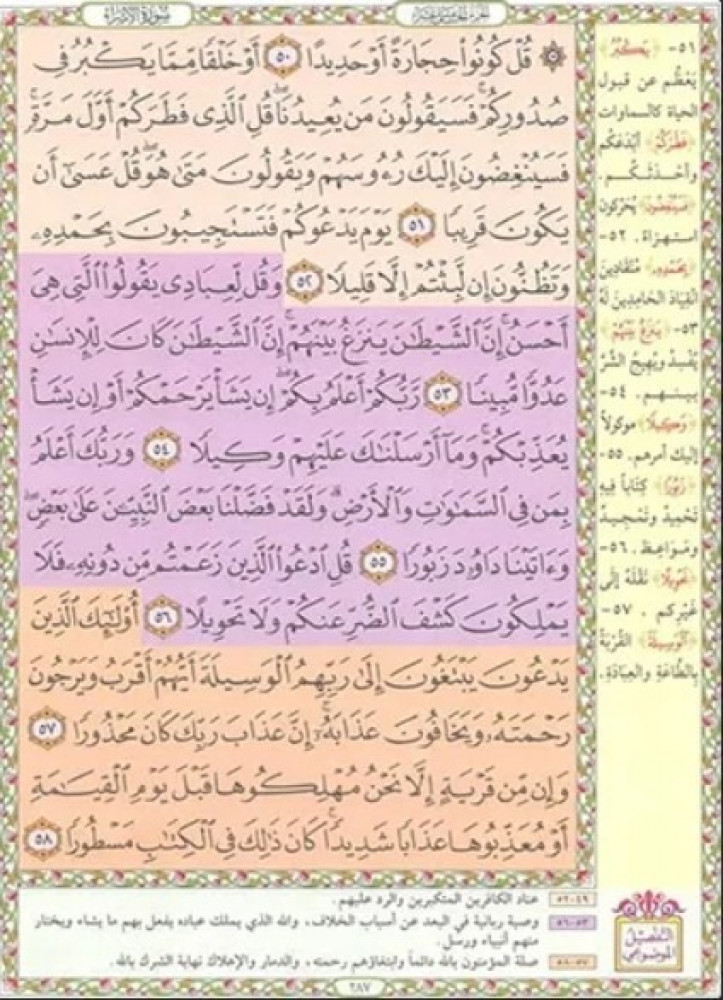 سُورَةُ الإِسْرَاءِ
الجزء الخامس عشر
۞ قُلْ كُونُوا۟ حِجَارَةً أَوْ حَدِيدًا ٥٠ أَوْ خَلْقًا مِّمَّا يَكْبُرُ فِى
صُدُورِكُمْ ۚ فَسَيَقُولُونَ مَن يُعِيدُنَا ۖ قُلِ ٱلَّذِى فَطَرَكُمْ أَوَّلَ مَرَّةٍ ۚ
فَسَيُنْغِضُونَ إِلَيْكَ رُءُوسَهُمْ وَيَقُولُونَ مَتَىٰ هُوَ ۖ قُلْ عَسَىٰٓ أَن
يَكُونَ قَرِيبًا ٥١ يَوْمَ يَدْعُوكُمْ فَتَسْتَجِيبُونَ بِحَمْدِهِۦ
وَتَظُنُّونَ إِن لَّبِثْتُمْ إِلَّا قَلِيلًا ٥٢ وَقُل لِّعِبَادِى يَقُولُوا۟ ٱلَّتِى هِىَ
أَحْسَنُ ۚ إِنَّ ٱلشَّيْطَـٰنَ يَنزَغُ بَيْنَهُمْ ۚ إِنَّ ٱلشَّيْطَـٰنَ كَانَ لِلْإِنسَـٰنِ
عَدُوًّا مُّبِينًا ٥٣ رَّبُّكُمْ أَعْلَمُ بِكُمْ ۖ إِن يَشَأْ يَرْحَمْكُمْ أَوْ إِن يَشَأْ
يُعَذِّبْكُمْ ۚ وَمَآ أَرْسَلْنَـٰكَ عَلَيْهِمْ وَكِيلًا ٥٤ وَرَبُّكَ أَعْلَمُ
بِمَن فِى ٱلسَّمَـٰوَٰتِ وَٱلْأَرْضِ ۗ وَلَقَدْ فَضَّلْنَا بَعْضَ ٱلنَّبِيِّـۧنَ عَلَىٰ بَعْضٍ ۖ
وَءَاتَيْنَا دَاوُۥدَ زَبُورًا ٥٥ قُلِ ٱدْعُوا۟ ٱلَّذِينَ زَعَمْتُم مِّن دُونِهِۦ فَلَا
يَمْلِكُونَ كَشْفَ ٱلضُّرِّ عَنكُمْ وَلَا تَحْوِيلًا ٥٦ أُو۟لَـٰٓئِكَ ٱلَّذِينَ
يَدْعُونَ يَبْتَغُونَ إِلَىٰ رَبِّهِمُ ٱلْوَسِيلَةَ أَيُّهُمْ أَقْرَبُ وَيَرْجُونَ
رَحْمَتَهُۥ وَيَخَافُونَ عَذَابَهُۥٓ ۚ إِنَّ عَذَابَ رَبِّكَ كَانَ مَحْذُورًا ٥٧
وَإِن مِّن قَرْيَةٍ إِلَّا نَحْنُ مُهْلِكُوهَا قَبْلَ يَوْمِ ٱلْقِيَـٰمَةِ
أَوْ مُعَذِّبُوهَا عَذَابًا شَدِيدًا ۚ كَانَ ذَٰلِكَ فِى ٱلْكِتَـٰبِ مَسْطُورًا ٥٨
٥١- ﴿يَكْبُرُ﴾
يَعْظُم عن قبول
الحياة كالسماوات
﴿فَطَرَكُمْ﴾ أَبْدَعَكُم
وأَحْدَثَكُم.
﴿فَسَيُنْغِضُونَ﴾ يُحَرِّكون
استهزاءً. ٥٢-
﴿بِحَمْدِهِ﴾ مُنْقَادين
انقِيَادَ الحَامِدِينَ لَهُ
٥٣- ﴿يَنزَغُ بَيْنَهُمْ﴾
يُفْسِدُ ويُهِيجُ الشَّرَّ
بينهم. ٥٤-
﴿وَكِيلًا﴾ موكولاً
إليك أمرهم. ٥٥-
﴿زَبُورًا﴾ كِتَاباً فيه
تَحْمِيدٌ وتَمْجِيدٌ
ومَوَاعِظ. ٥٦-
﴿تَحْوِيلًا﴾ نَقْلَهُ إلى
غَيْرِكم. ٥٧-
﴿الْوَسِيلَةَ﴾ القُرْبَةَ
بِالطَّاعَةِ والعِبَادَةِ.
التفصيل الموضوعي
٤٩-٥٢ عناد الكافرين المتكبرين والرد عليهم.
٥٣-٥٦ وصية ربانية في البعد عن أسباب الخلاف، والله الذي يملك عباده يفعل بهم ما يشاء ويختار
منهم أنبياء ورسل.
٥٧-٥٨ صلة المؤمنون بالله دائماً وابتغاؤهم رحمته، والدمار والإهلاك نهاية الشرك بالله.
٢٨٧